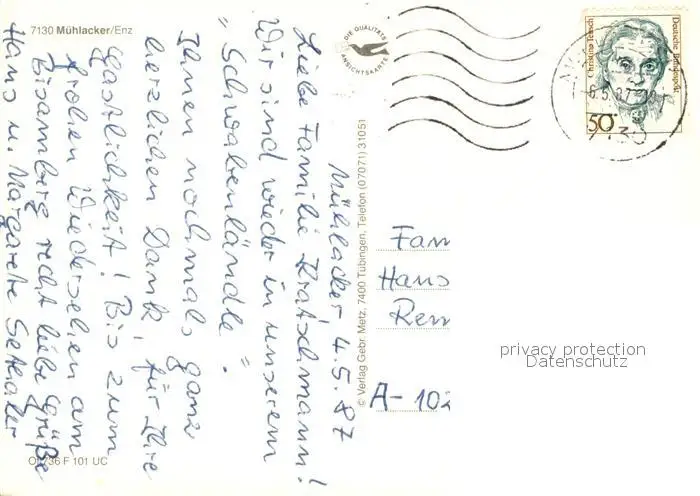 7130 Mühlacker/Enz
DIE QUALITÄTS
ANSICHTSKARTE
Christine Teusch
Deutsche Bundespost
50
6.5.87
7130
Mühlacker, 4.5.87
Liebe Familie Kratschmann!
Wir sind wieder in unserem
"Schwabenländle".
Ihnen nochmals ganz
herzlichen Dank, für Ihre
Gastlichkeit! Bis zum
frohen Wiedersehen am
Bisamberg recht liebe Grüße
Hans u. Margarete
© Verlag Gebr. Metz, 7400 Tübingen, Telefon (07071) 31051
Fam
Hans
Ren
A-102
privacy protection
Datenschutz
736 F 101 UC